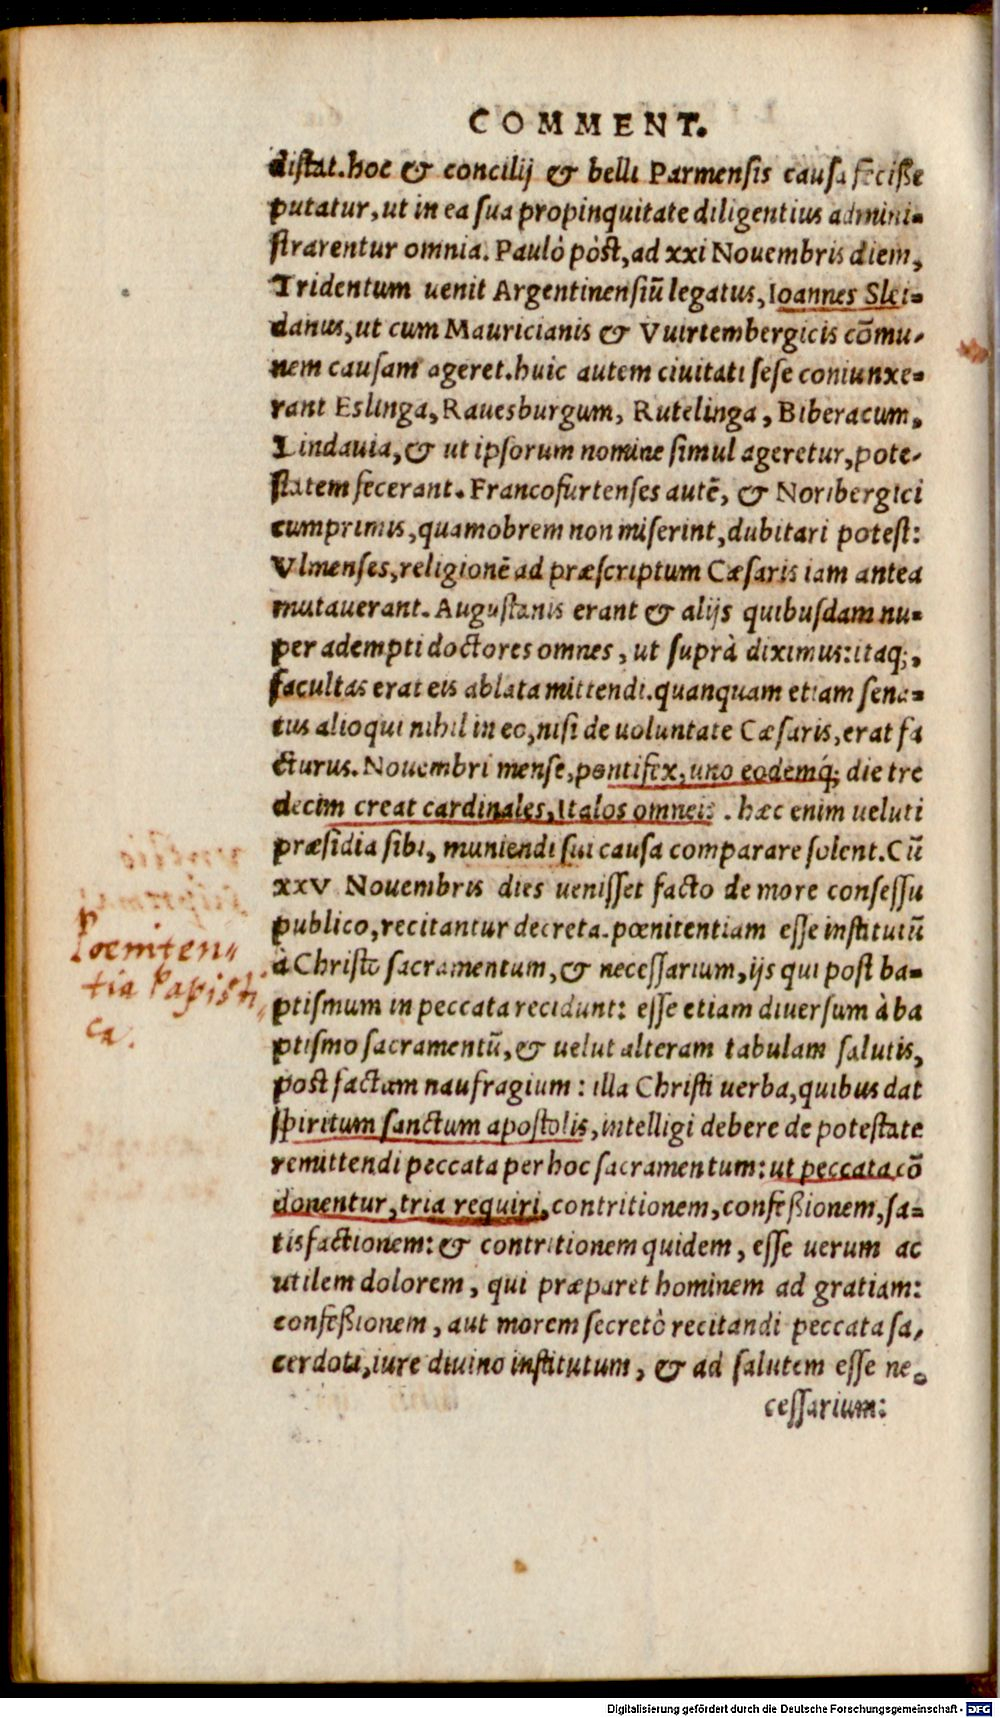 COMMENT.
distat. hoc & concilij & belli Parmensis causa fecisse
putatur, ut in ea sua propinquitate diligentius admini-
strarentur omnia. Paulò pòst, ad xxi Nouembris diem,
Tridentum uenit Argentinensiũ legatus, Ioannes Slei-
danus, ut cum Mauricianis & Vuirtembergicis cõmu-
nem causam ageret. huic autem ciuitati sese coniunxe-
rant Eslinga, Rauesburgum, Rutelinga, Biberacum,
Lindauia, & ut ipsorum nomine simul ageretur, pote-
statem fecerant. Francofurtenses autẽ, & Noribergici
cumprimis, quamobrem non miserint, dubitari potest:
Vlmenses, religionẽ ad præscriptum Cæsaris iam antea
mutauerant. Augustanis erant & alijs quibusdam nu-
per adempti doctores omnes, ut suprà diximus: itaq;,
facultas erat eis ablata mittendi. quanquam etiam sena-
tus alioqui nihil in eo, nisi de uoluntate Cæsaris, erat fa
cturus. Nouembri mense, pontifex, uno eodemq́; die tre
decim creat cardinales, Italos omneis. hæc enim ueluti
præsidia sibi, muniendi sui causa comparare solent. Cũ
xxv Nouembris dies uenisset facto de more consessu
publico, recitantur decreta. pœnitentiam esse institutũ
à Christo sacramentum, & necessarium, ijs qui post ba-
ptismum in peccata recidunt: esse etiam diuersum à ba
ptismo sacramentũ, & uelut alteram tabulam salutis,
post factam naufragium: illa Christi uerba, quibus dat
spiritum sanctum apostolis, intelligi debere de potestate
remittendi peccata per hoc sacramentum: ut peccata cõ
donentur, tria requiri, contritionem, confeßionem, sa-
tisfactionem: & contritionem quidem, esse uerum ac
utilem dolorem, qui præparet hominem ad gratiam:
confeßionem, aut morem secretò recitandi peccata sa-
cerdoti, iure diuino institutum, & ad salutem esse ne-
cessarium:
Poeniten-
tia Papisti-
ca.
Digitalisierung gefördert durch die Deutsche Forschungsgemeinschaft - DFG